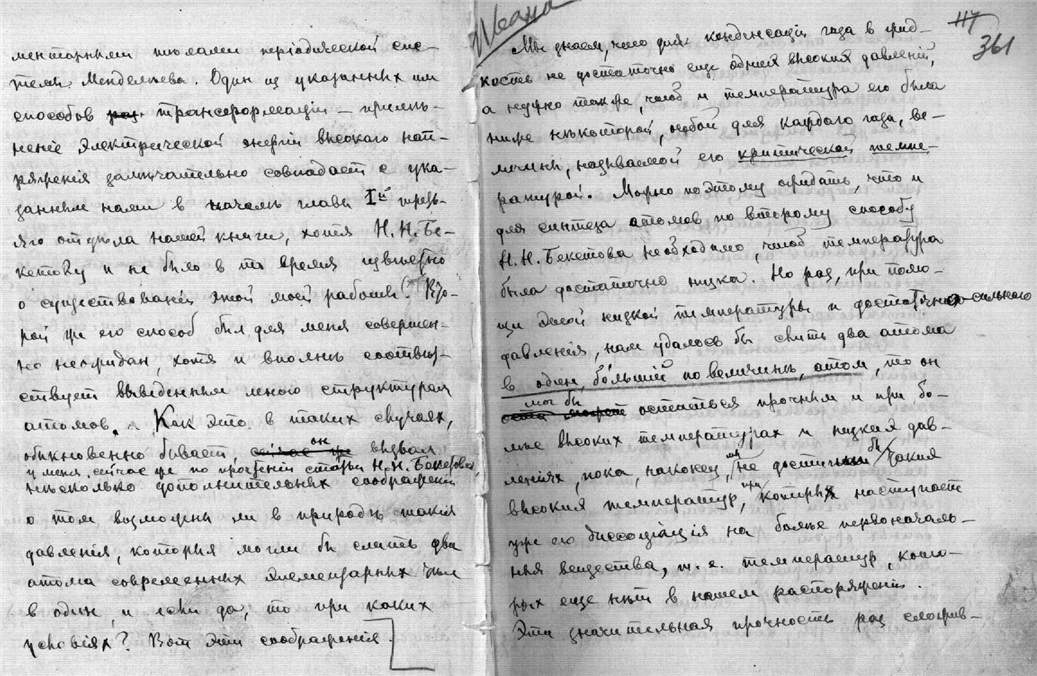 ментарными тѣлами періодической сис-
темы Менделѣева. Один из указанных им
способов трансформаціи – примѣ-
неніе электрической энергіи высокаго нап-
ряженія замѣчательно совпадает с ука-
занным нами в началѣ главы Iой треть-
яго отдѣла нашей книги, хотя Н.Н. Бе-
кетову и не было в то время извѣстно
о существованіи этой моей работы. Вто-
рой же его способ был для меня совершен-
но неожидан, хотя и вполнѣ соотвѣт-
ствует выведенным мною структурам
атомов. Как это в таких случаях,
обыкновенно бывает, он вызвал
у меня сейчас же по прочтеніи статьи Н.Н. Бекетова,
нѣсколько дополнительных соображеній
о том, возможны ли в природѣ такія
давленія, которыя могли бы слить два
атома современных элементарных тѣл
в один, и если да, то при каких
условіях? Вот эти соображенія.
361
Мы знаем, что для конденсаціи газа в жид-
кость не достаточно еще одних высоких давленій,
а нужно также, чтоб и температура его была
ниже нѣкоторой, особой для каждаго газа, ве-
личины, называемой его критической темпе-
ратурой. Можно поэтому ожидать, что и
для синтеза атомов по второму способу
Н.Н. Бекетова необходимо, чтоб температура
была достаточно низка. Но раз, при помо-
щи такой низкой температуры и достаточно сильнаго
давленія, нам удалось бы слить два атома
в один, бóльшій по величинѣ, атом, то он
мог бы
остаться прочным и при бо-
лѣе высоких температурах и низких дав-
леніях, пока, наконец, мы не достигли бы такия
высокия температур, при которых наступает
уже его диссоціація на болѣе первоначаль-
ныя вещества, т. е. температур, кото-
рых еще нѣт в нашем распоряженіи.
Эта значительная прочность раз